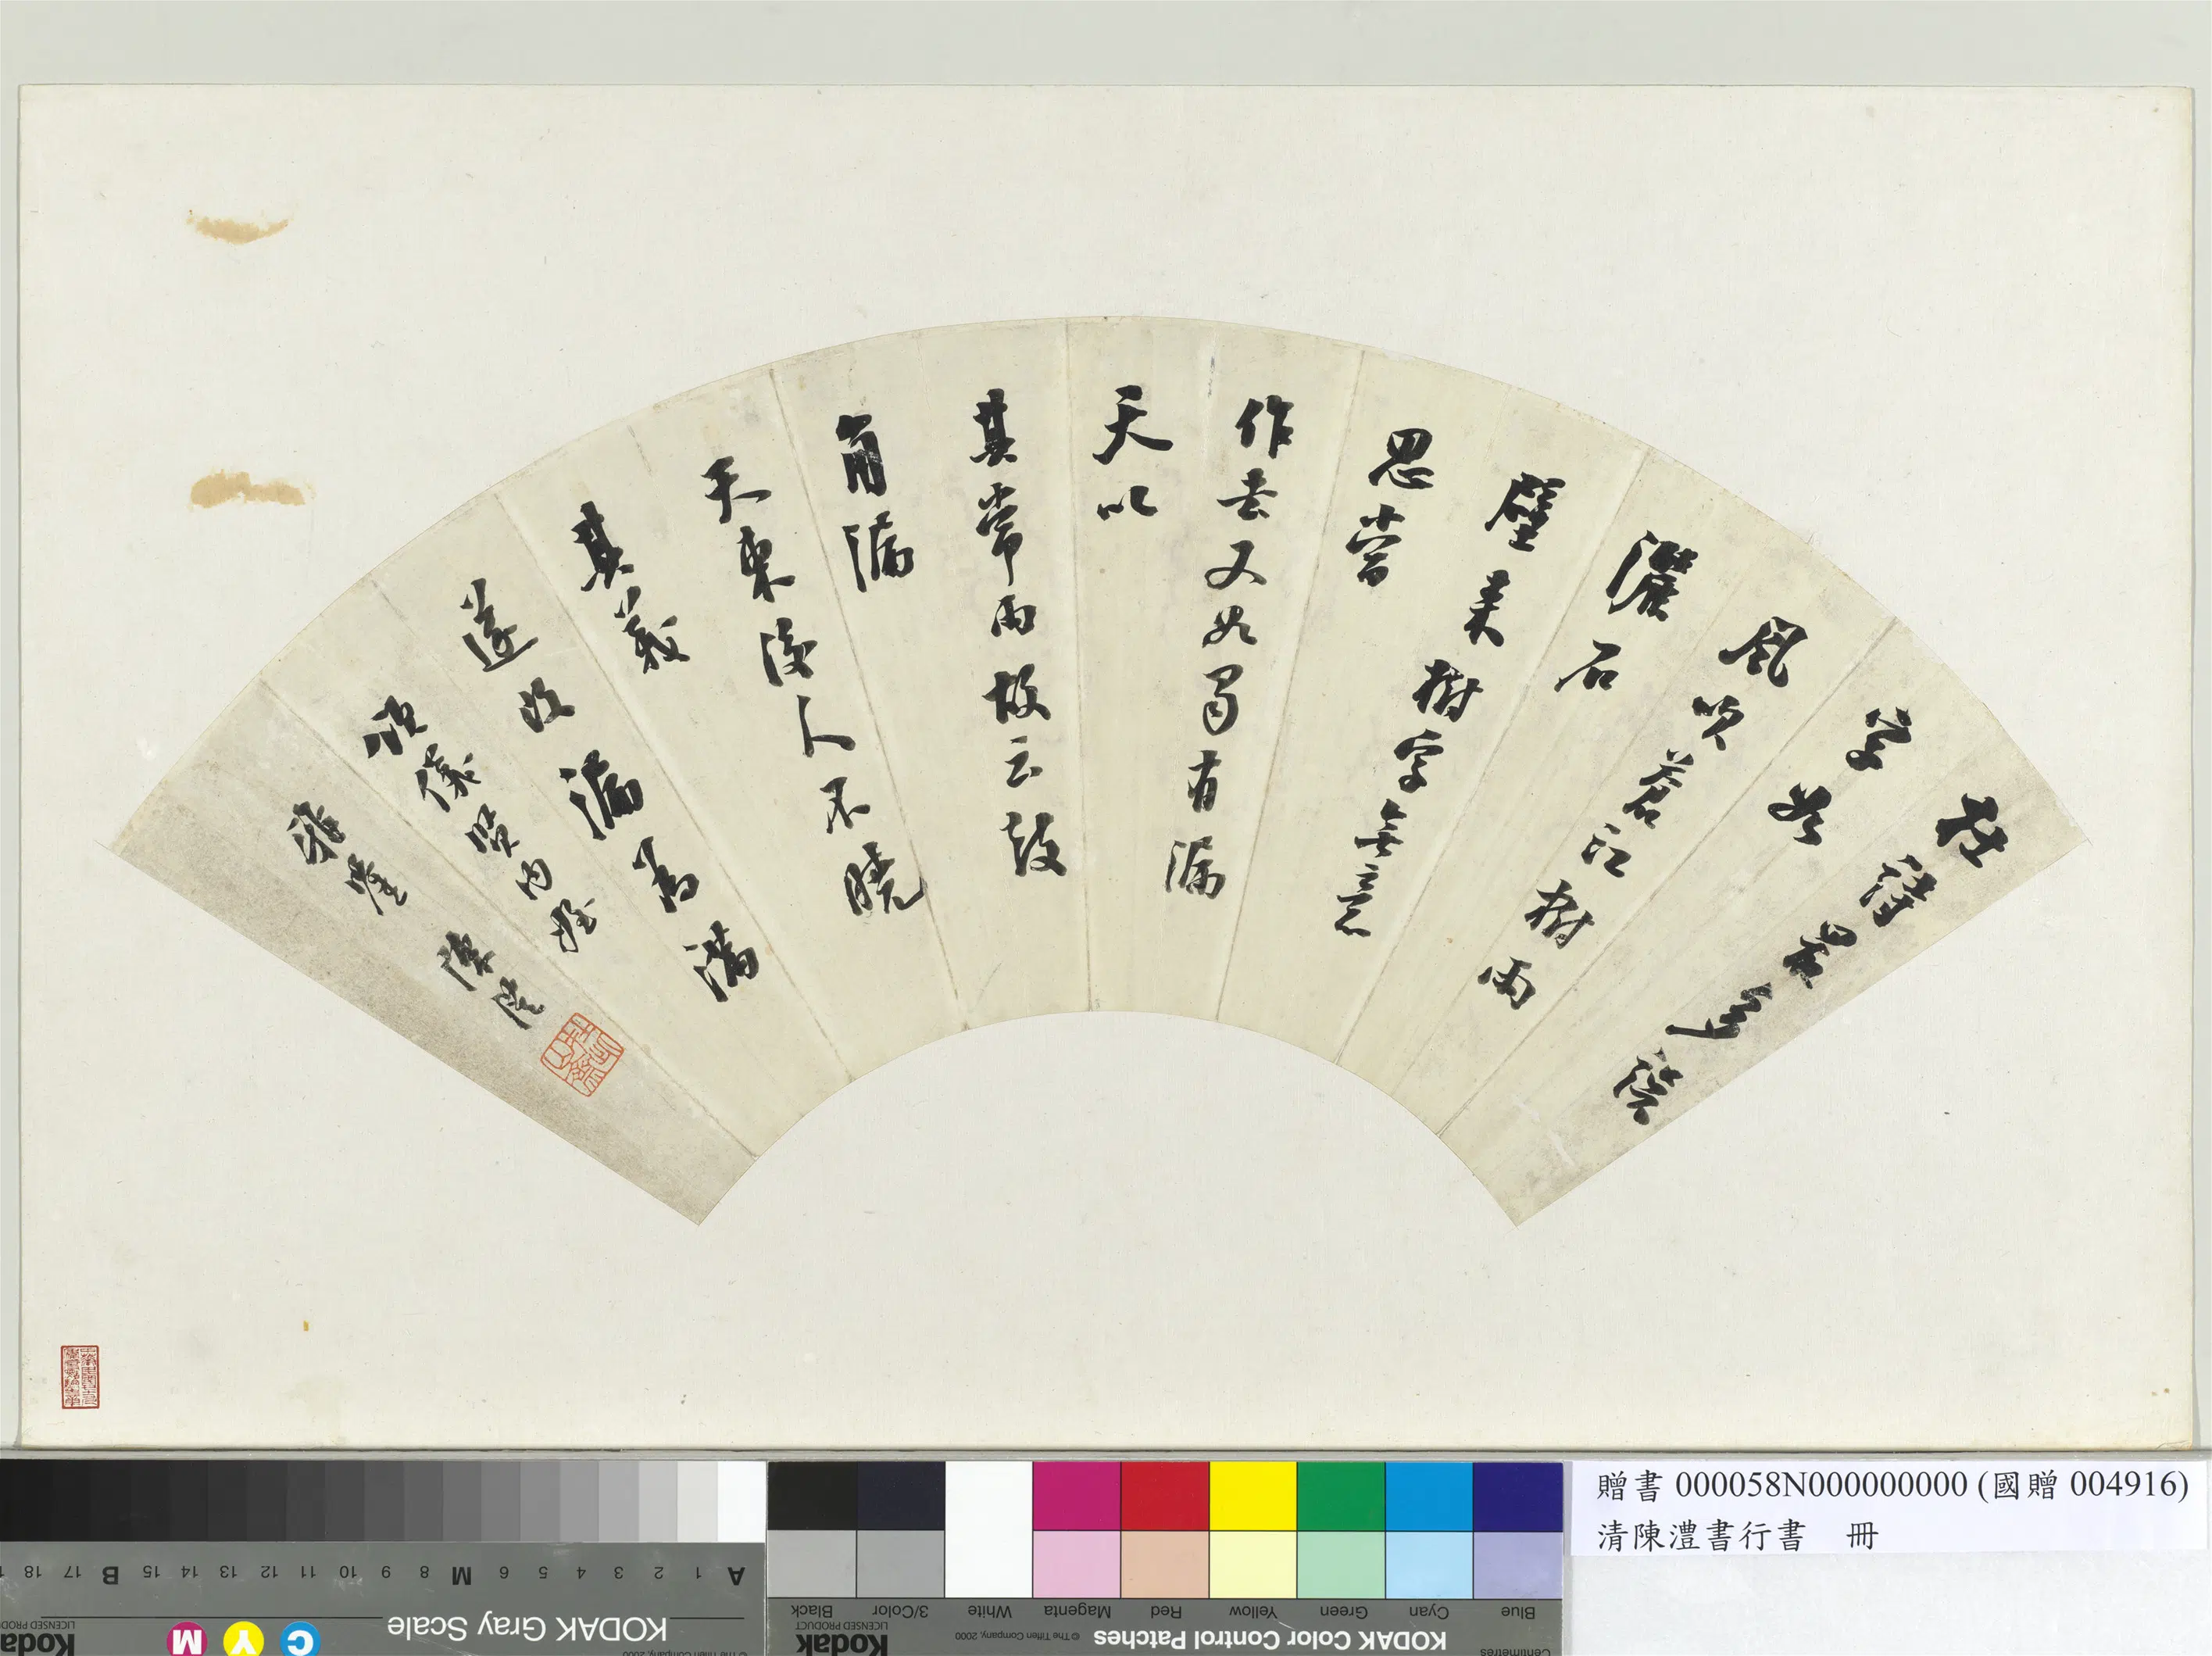 杜詩最多誤
字如
風吹蒼江樹雨
灑石
壁来樹字無意
思當
作去又如蜀有漏
天以
其常雨故云鼓
角漏
天東後人不晓
其義
遂改漏為滿
儀賢内姪
雅鑒 陳澧
贈書 000058N000000000 (國贈 004916)
清陳澧書行書 冊
A 1 2 3 4 5 6 M 8 9 10 11 12 13 14 15 B 17 18
KODAK Gray Scale
C Y M
Kodak
LICENSED PRODUCT
© The Tiffen Company, 2000
Blue Cyan Green Yellow Red Magenta White 3/Color Black
KODAK Color Control Patches
© The Tiffen Company, 2000
Kodak
LICENSED PRODUCT
Centimetres